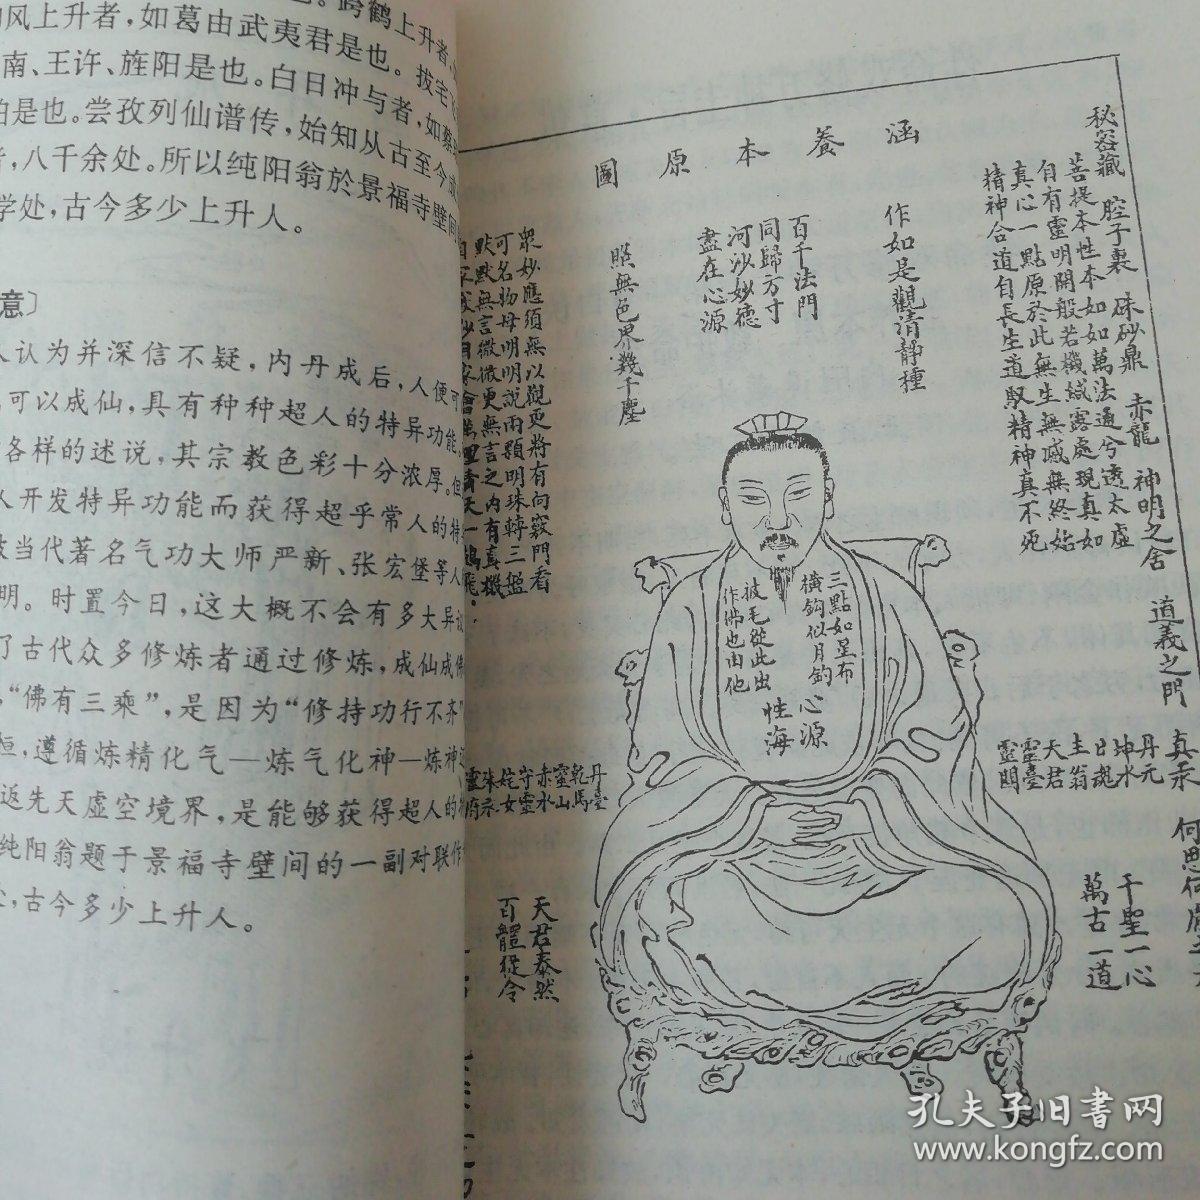 风上升者，如葛由武夷君是也。跨鹤上升者，
南、王许、旌阳是也。白日冲与者，如蔡
是也。尝孜列仙谱传，始知从古至今成
，八千余处。所以纯阳翁於景福寺壁间
学处，古今多少上升人。
意〕
人认为并深信不疑，内丹成后，人便可
可以成仙，具有种种超人的特异功能。
各样的述说，其宗教色彩十分浓厚。但
人开发特异功能而获得超乎常人的特
被当代著名气功大师严新、张宏堡等人
明。时置今日，这大概不会有多大异议
了古代众多修炼者通过修炼，成仙成佛
“佛有三乘”，是因为“修持功行不齐”
恒，遵循炼精化气—炼气化神—炼神还
返先天虚空境界，是能够获得超人的
纯阳翁题于景福寺壁间的一副对联作
，古今多少上升人。
涵養本原圖
秘密藏 腔子裏 硃砂鼎 赤龍 神明之舍 道義之門 真汞
菩提本性本如如萬法通兮透太虛
自有靈明開般若機緘露處現真如
真心一點原於此無生無滅無終始
精神合道自長生道馭精神真不死
作如是觀清靜種
百千法門
同歸方寸
河沙妙德
盡在心源
照無色界幾千塵
眾妙應須無以觀更將有向竅門看
可名物母明明說兩顆明珠轉三盤
默默無言微微更無言之內有真機
三點如星布
橫鈎似月鈎
披毛從此出
作佛也由他
心源
性海
丹元
坤水
日魂
主翁
天君
靈臺
靈關
丹臺
乾馬
靈山
赤水
守靈
姹女
朱汞
靈府
何思何慮之天
千聖一心
萬古一道
天君泰然
百體從令
孔夫子旧书网
www.kongfz.com